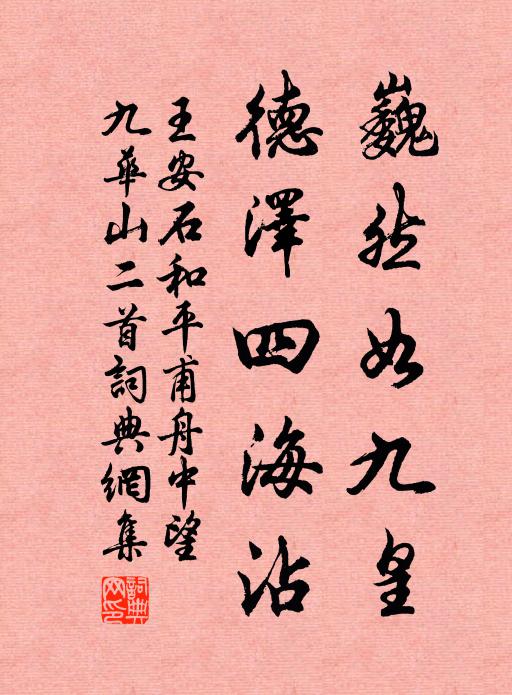 巍然如九皇
德澤四海沾
王安石和平甫舟中望
九華山二首詞典網集
詞典网印